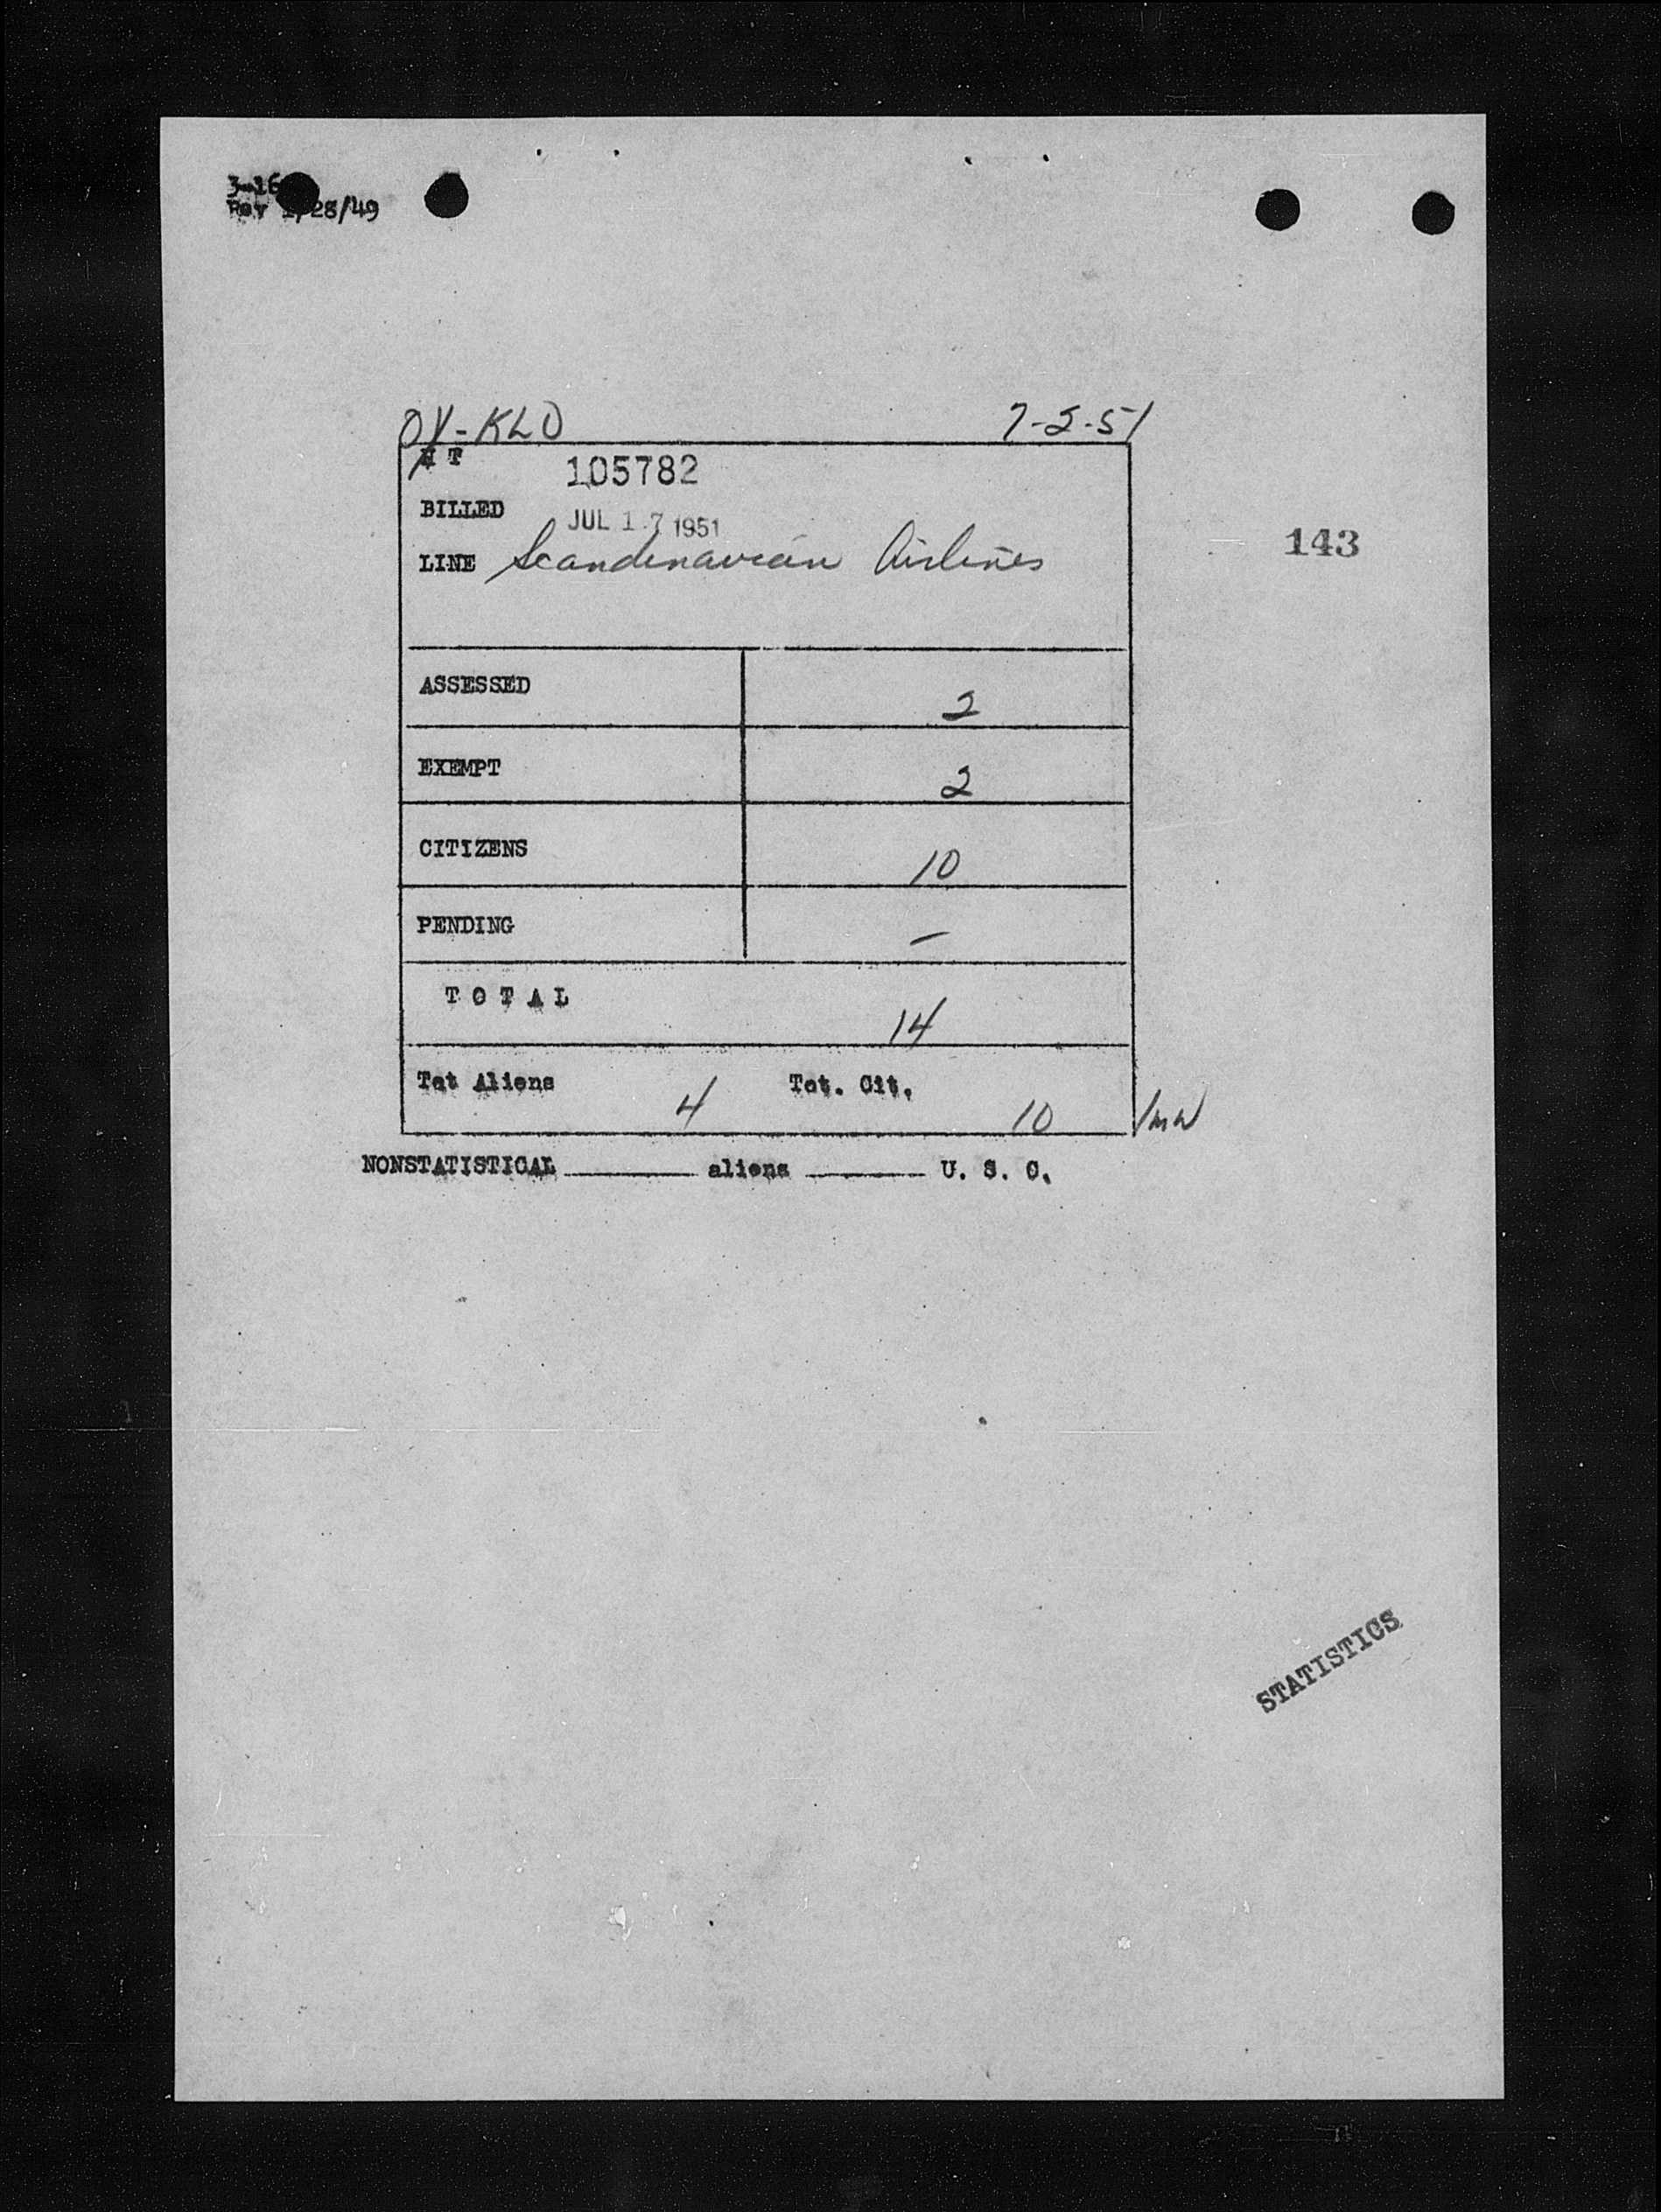 3-16
Rev /28/49
OY-KLO 7-2-51
H T 105782
BILLED JUL 17 1951
LINE Scandinavian Airlines
143
ASSESSED 2
EXEMPT 2
CITIZENS 10
PENDING —
TOTAL 14
Tot Aliens 4 Tot. Cit. 10 /mw
NONSTATISTICAL ______ aliens ______ U. S. C.
STATISTICS